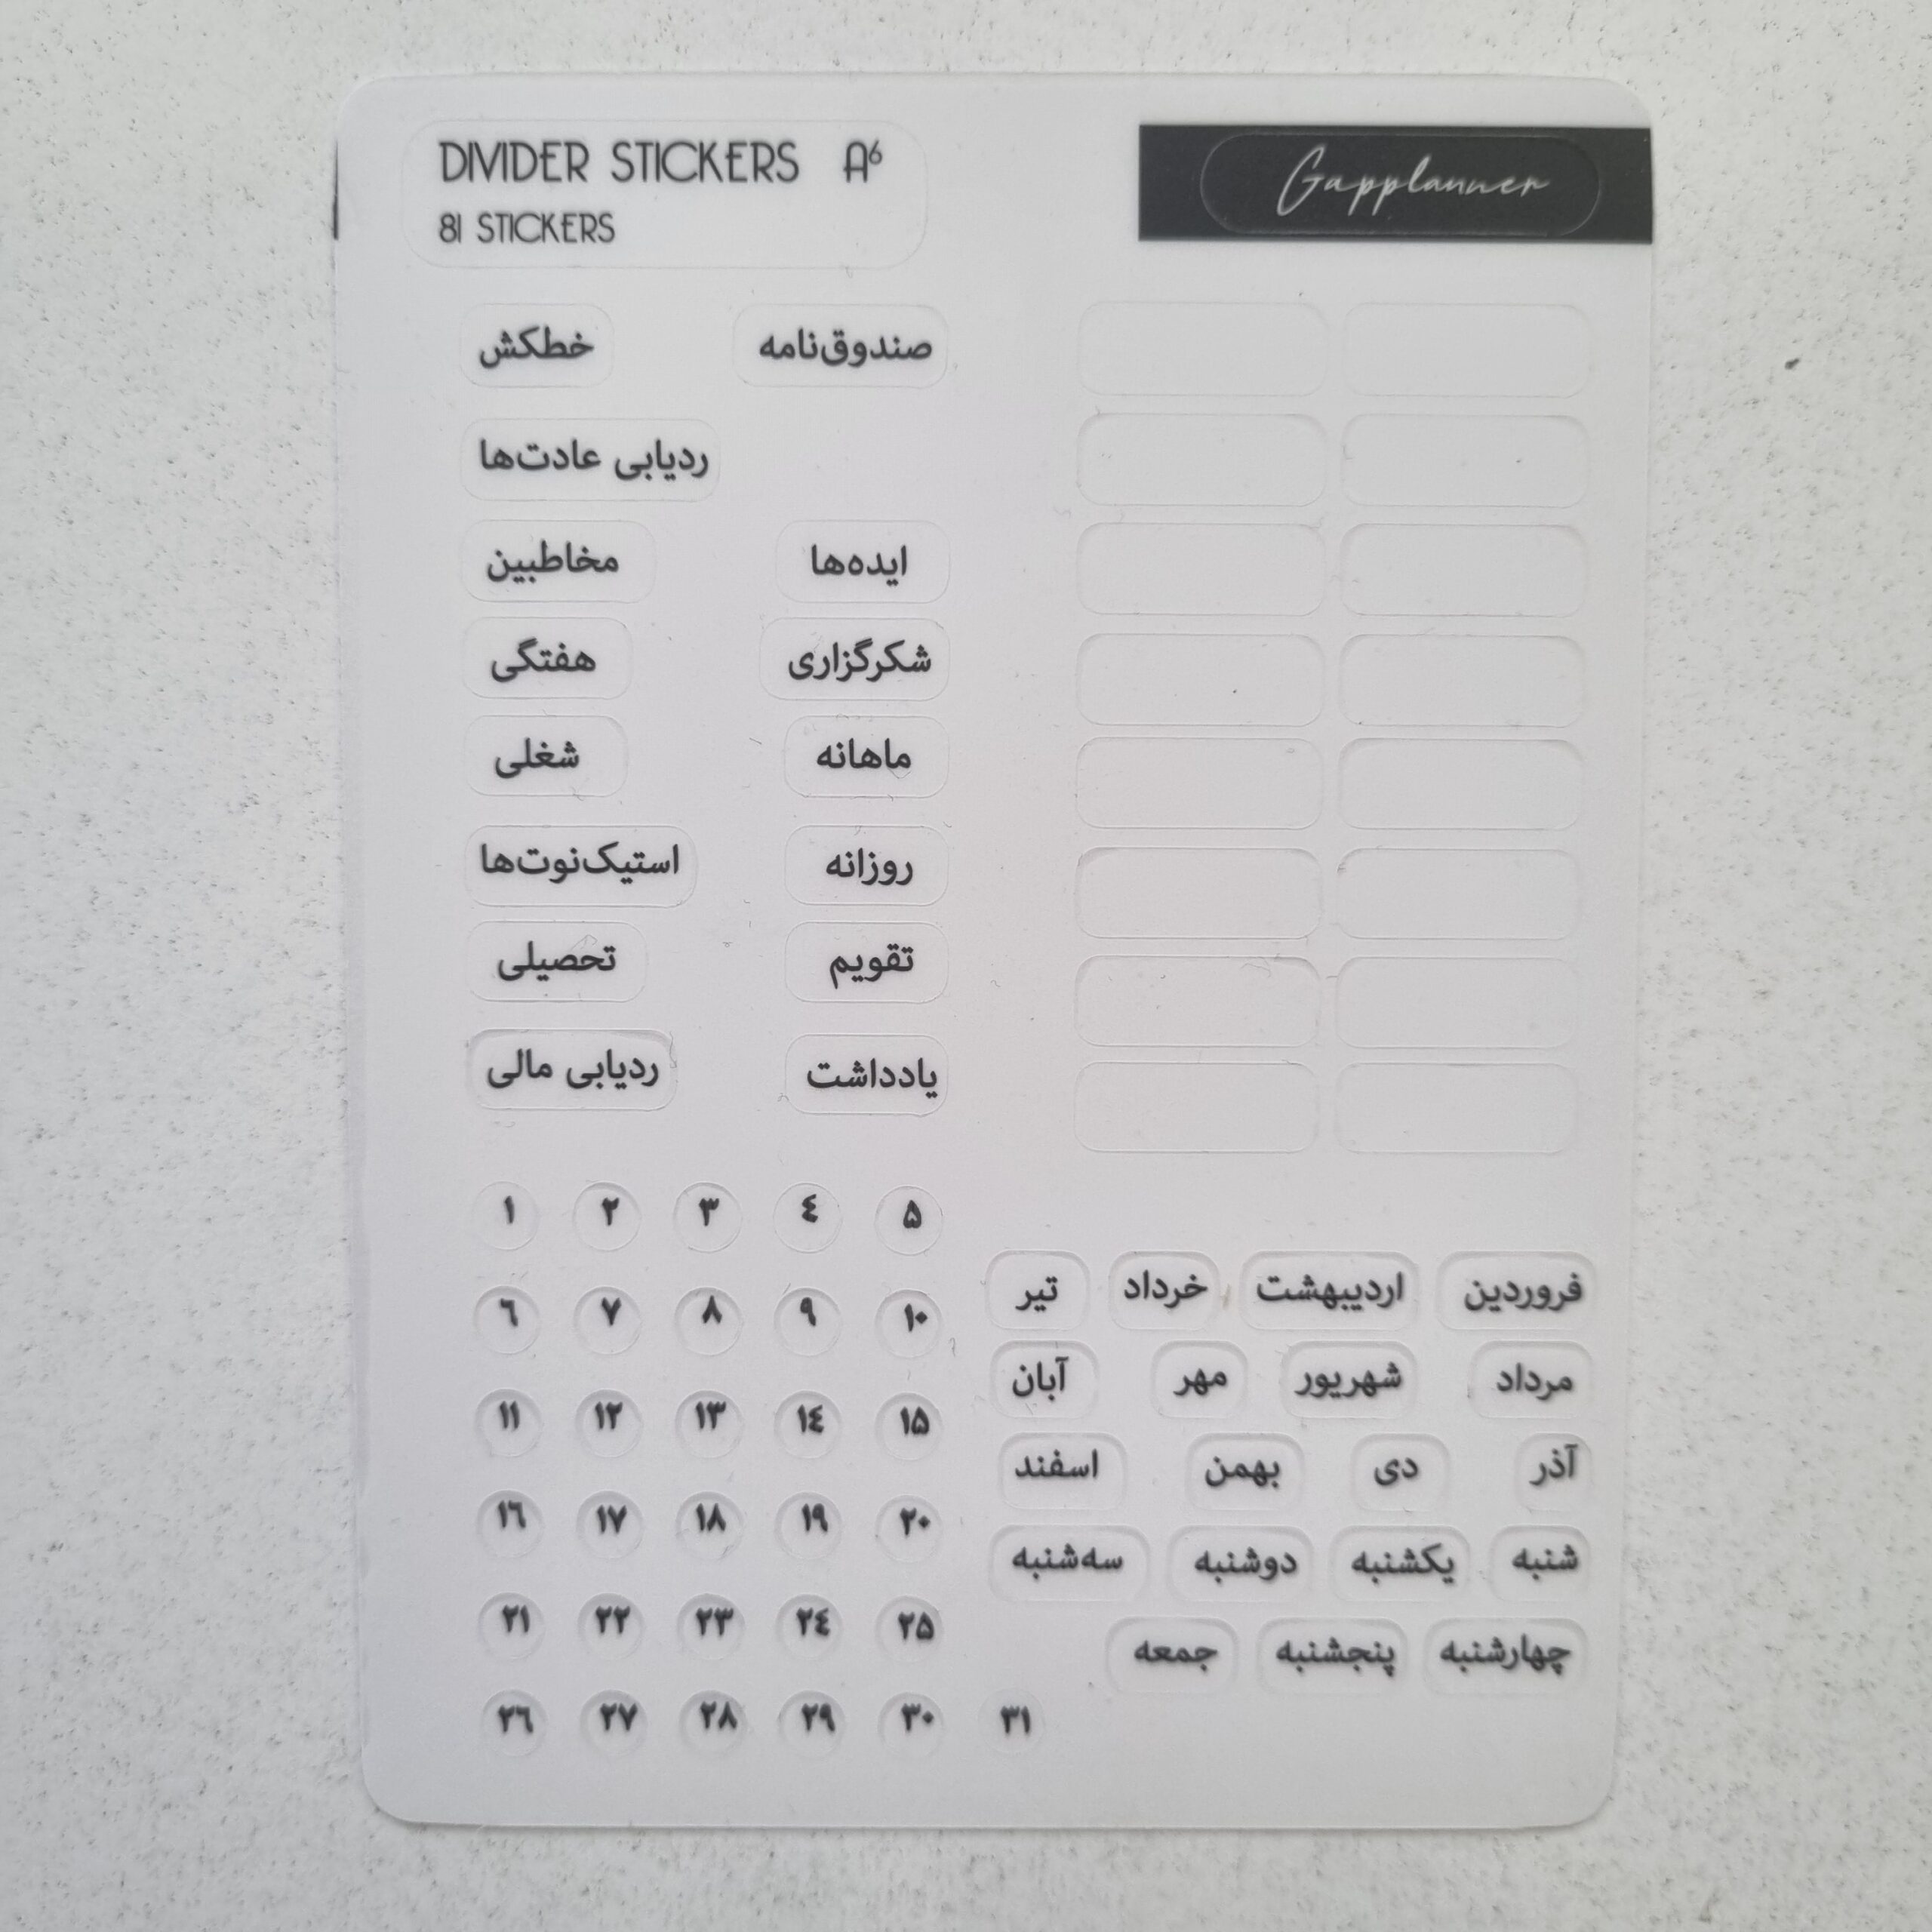 DIVIDER STICKERS A6
81 STICKERS
Gapplanner
صندوق‌نامه خطکش
ردیابی عادت‌ها
ایده‌ها مخاطبین
شکرگزاری هفتگی
ماهانه شغلی
روزانه استیک‌نوت‌ها
تقویم تحصیلی
یادداشت ردیابی مالی
۱ ۲ ۳ ٤ ۵
٦ ۷ ۸ ۹ ۱۰
۱۱ ۱۲ ۱۳ ۱٤ ۱۵
۱٦ ۱۷ ۱۸ ۱۹ ۲۰
۲۱ ۲۲ ۲۳ ۲٤ ۲۵
۲٦ ۲۷ ۲۸ ۲۹ ۳۰ ۳۱
فروردین اردیبهشت خرداد تیر
مرداد شهریور مهر آبان
آذر دی بهمن اسفند
شنبه یکشنبه دوشنبه سه‌شنبه
چهارشنبه پنجشنبه جمعه